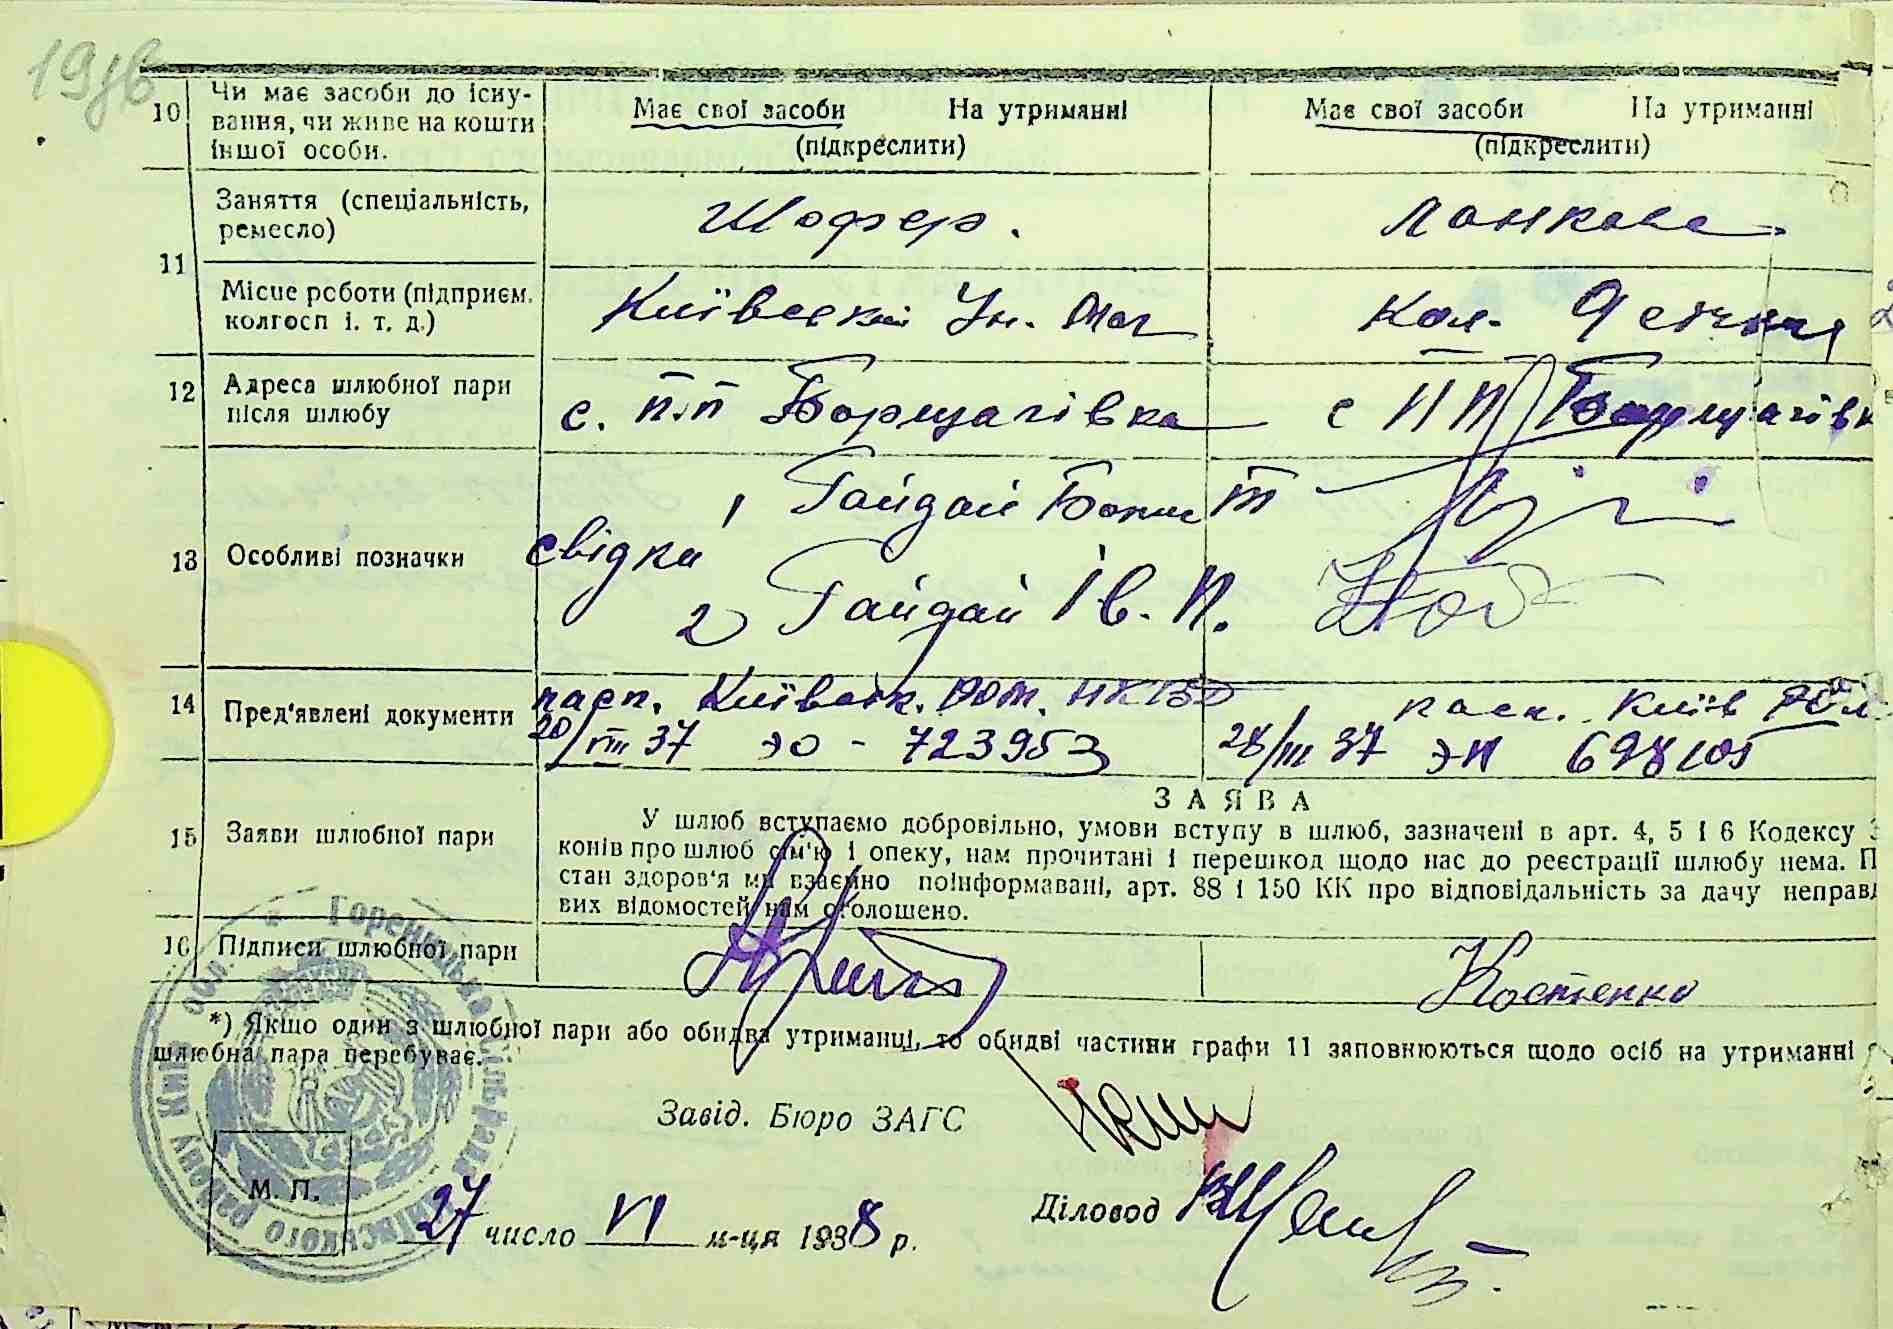 19зв
10 Чи має засоби до існу-
вання, чи живе на кошти
іншої особи.
Має свої засоби На утриманні
(підкреслити)
Має свої засоби На утриманні
(підкреслити)
11 Заняття (спеціальність,
ремесло)
Шофер.
Ланкова
Місце роботи (підприєм.
колгосп і. т. д.)
Київський Ун. Маг
Кол. 9 січня
12 Адреса шлюбної пари
після шлюбу
с. П.П Борщагівка
с ПП Борщагівк
13 Особливі позначки
свідки
1 Гайдай Т
2 Гайдай Ів. П.
14 Пред'явлені документи
пасп. Київськ. НКВД
20/III 37 эо - 723953
пасп. Київ
28/III 37 эп 698105
15 Заяви шлюбної пари
ЗАЯВА
У шлюб вступаємо добровільно, умови вступу в шлюб, зазначені в арт. 4, 5 і 6 Кодексу З
конів про шлюб сім'ю і опеку, нам прочитані і перешкод щодо нас до реєстрації шлюбу нема. П
стан здоров'я ми взаємно поінформавані, арт. 88 і 150 КК про відповідальність за дачу неправд
вих відомостей нам оголошено.
16 Підписи шлюбної пари
Костенко
*) Якщо один з шлюбної пари або обидва утриманці, то обидві частини графи 11 заповнюються щодо осіб на утриманні
шлюбна пара перебуває.
Завід. Бюро ЗАГС
Діловод
М. П.
27 число VI м-ця 1938 р.
Горенська сільрада Київського району Київ. обл.